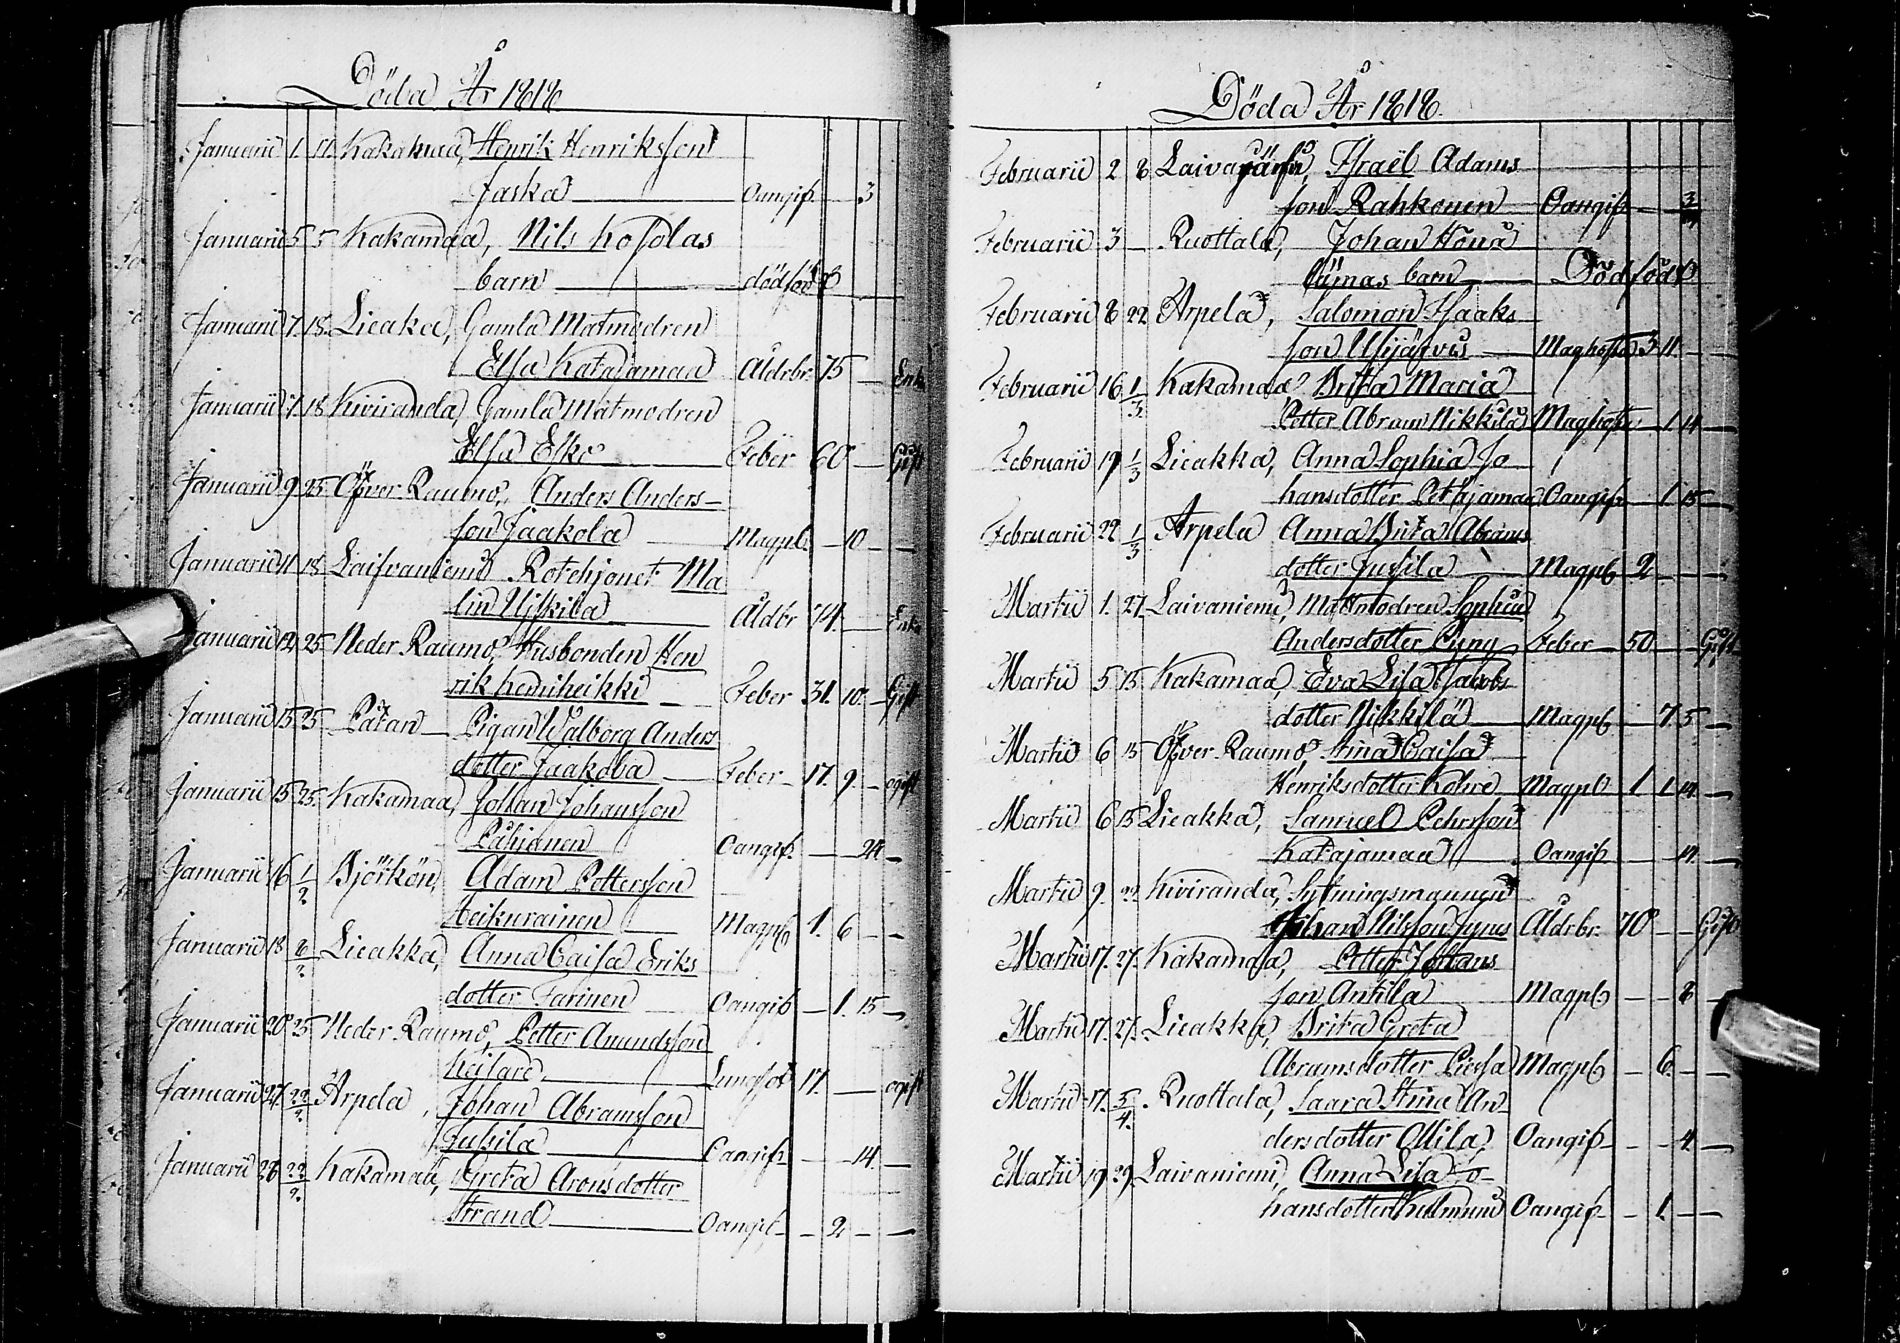 Döda År 1818
Januarii 1. 11. Kakamaa, Henrik Henriksson
Jaska Oangifv. 3
Januarii 5 5 Kakamaa, Nils
barn dödfödt
Januarii 7. 18. Lieaka, Gamla Matmodren
Elsa Katajamaa Åldrbr. 75 Enk
Januarii 7. 18 Kiviranda, Gamla Matmodren
Elsa Elko Feber 60 Gift
Januarii 9. 25 Öfver Raumo, Anders Anders-
son Jaakola Magpl. 10
Januarii 11 18 Laifvaniemi Rotehjonet Ma
lin Åldbr 74. Enk
Januarii 12 25 Neder Raumo, Husbonden Hen
rik Kemiheikki Feber 31. 10. Gift
Januarii 15 25 Låtan Pigan Walborg Anders
dotter Jaakola Feber 17. 9. ogift
Januarii 15 25 Kakamaa, Johan Johansson
Oangif. 24
Januarii 16 1/2 Björkön, Adam Pettersson
Heikurainen Magpl. 1. 6
Januarii 18 8/2 Lieakka, Anna Caisa Eriks
dotter Oangif. 1. 15
Januarii 20 25 Neder Raumo, Petter Amundsson
Keilare Lungsot 17. ogift
Januarii 27. 22/2 Arpela, Johan Abramsson
Jussila Oangif. 14.
Januarii 28 22/2 Kakamaa, Greta Aronsdotter
Strand Oangif. 2
Döda År 1818.
Februarii 2 8 Israël Adams
son Rahkonen Oangif. 3/4
Februarii 3 Ruottala, Johan
barn Dödfödt
Februarii 8 22 Arpela, Salomon Isaaks
son Maghosta 3 11
Februarii 16 1/3 Kakamaa Brita Maria
Petter Abram Nikkilä Maghosta 1 14
Februarii 19 1/3 Lieakka, Anna Sophia Jo
hansdotter Petäjamaa Oangif. 1. 15
Februarii 22 1/3 Arpela Anna Brita Abrams
dotter Jussila Magpl 2
Martii 1. 27. Laivaniemi, Matmodren Sophia
Andersdotter Feber 50 Gift
Martii 5 15 Kakamaa, Eva Lisa Jacobs
dotter Nikkilä Magpl 7. 5
Martii 6 15 Öfver Raumo, Stina Caisa
Henriksdotter Magpl 1 1 14
Martii 6 15 Lieakka, Samuel Pehrsson
Katajamaa Oangif 14
Martii 9. 22. Kiviranda, Sytningsmannen
Johan Nilsson Åldrbr. 70 Gift
Martii 17. 27. Kakamaa, Petter Johans
son Antilla Magpl 8
Martii 17. 27. Lieakka, Brita Greta
Abramsdotter Magpl 6.
Martii 17. 5/4. Ruottala, Saara Stina An-
dersdotter Ollila Oangif 4.
Martii 19 29 Laivaniemi, Anna Lisa Jo-
hansdotter Oangif 1.